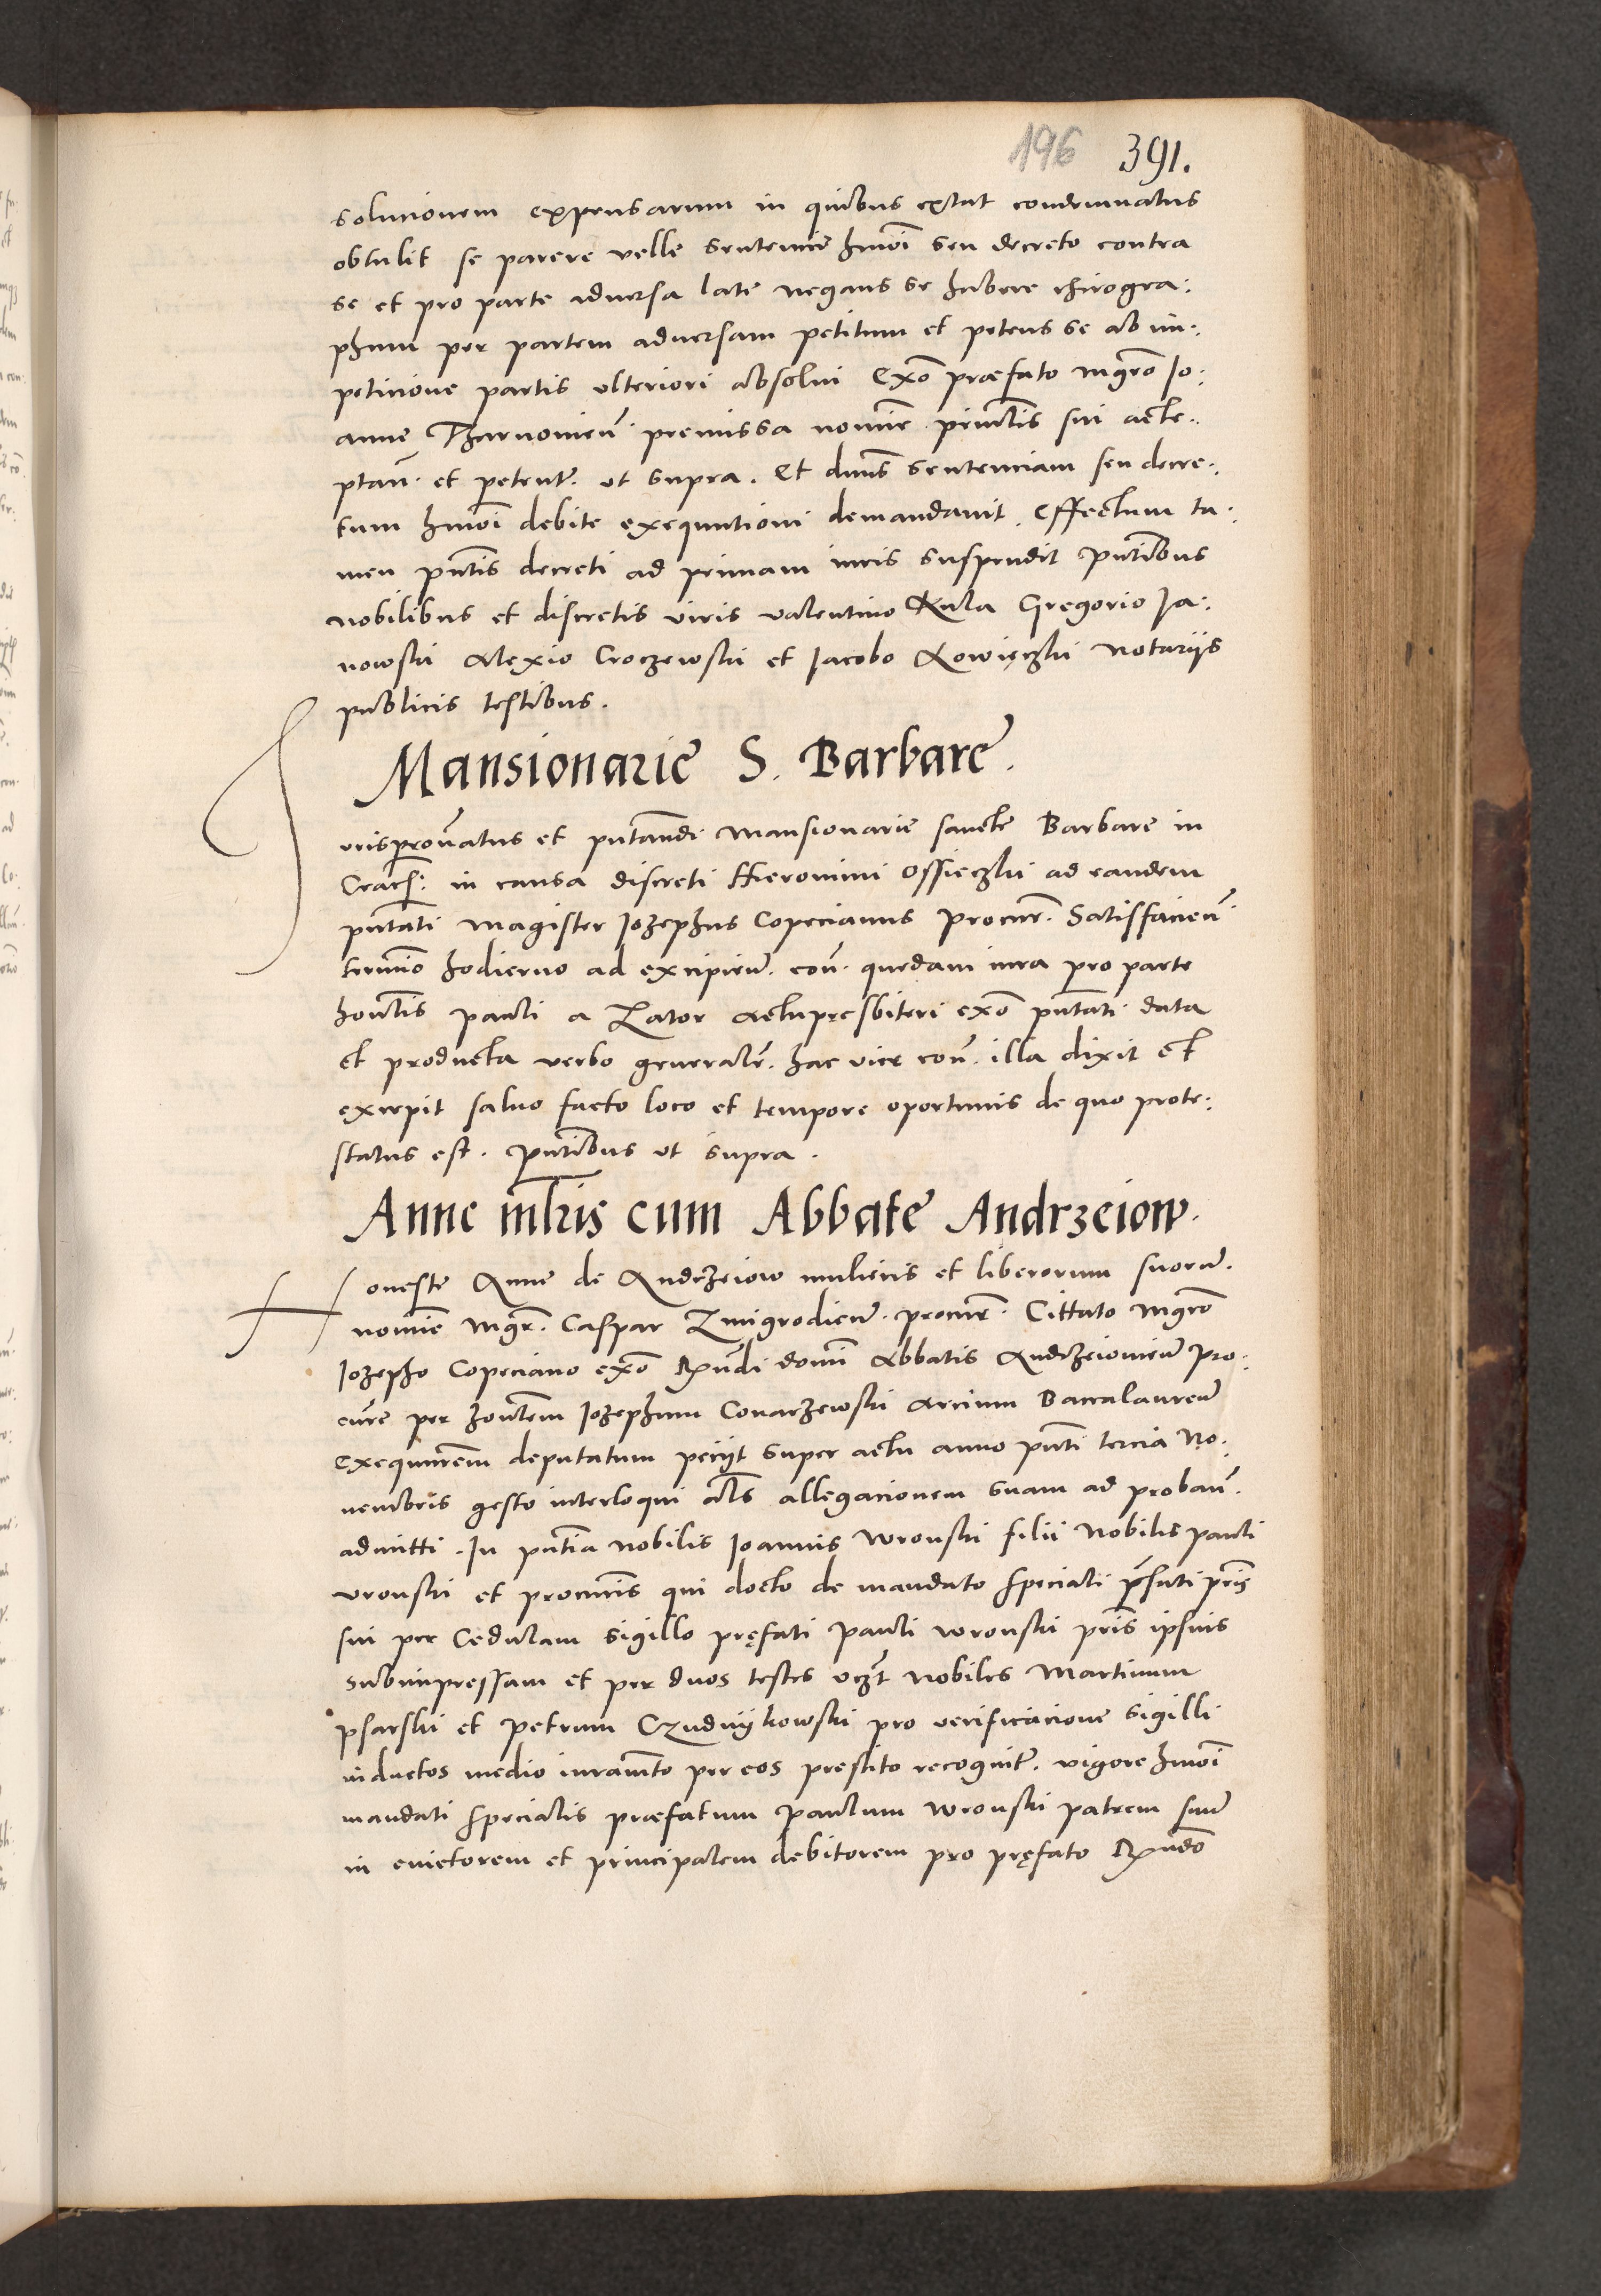 196 391.
solucionem expensarum in quibus extat condemnatus
obtulit se parere velle sentencie hmõi seu decreto contra
se et pro parte adversa late negans se habere chirogra:
phum per partem adversam petitum et petens se ab im:
peticione partis ulteriori absolvi Exõ præfato mgrõ Jo:
anne Tharnovieñ premissa nomine principlis sui acce:
ptañ. et petentẽ. ut supra. Et dnus sentenciam seu decre:
tum hmõi debite exequutioni demandavit. Effectum ta:
men pñtis decreti ad primam iuris suspendit pñtibus
nobilibus et discretis viris Valentino Kula Gregorio Ja:
nowski Alexio Croczewski et Jacobo Lowięczki Notariis
publicis testibus.
Mansionarie S. Barbare.
Jurispronatus et pñtandi Mansionarie sancte Barbare in
Cracõ: in causa discreti Hieronimi Ossieczki ad eandem
pñtati Magister Jozephus Copecianus Procur. Satisfacieñ.
termino hodierno ad excipieñ. coñ. quedam iura pro parte
honlis Pauli a Zator Altipresbiteri exõ pñtati data
et producta verbo generalẽ. hac vice coñ. illa dixit et
excepit salvo facto loco et tempore oportunis de quo prote:
status est. Pñtibus ut supra.
Anne mlris cum Abbate Andrzeiow.
Honeste Anne de Andrzeiow mulieris et liberorum suorũ.
nomine mgr. Caspar Zmigrodieñ. procur. Cittato mgrõ
Jozepho Copeciano exõ Rñdi domi Abbatis Andrzeiovieñ pro:
cure per honlem Jozephum Convarzewski Arcium Baccalaureũ
exequutorem deputatum peciit super actu anno pñti tercia No:
vembris gesto interloqui als allegacionem suam ad probañ.
admitti. In pñtia nobilis Joannis Wronski filii Nobilis Pauli
Vronski et procuris qui docto de mandato speciali pfati pris
sui per Cedulam sigillo pręfati Pauli Wronski pris ipsius
subimpressam et per duos testes vczt Nobiles Martinum
Psarski et Petrum Czudnijkowski pro verificacione sigilli
inductos medio iuramto per eos prestito recognitẽ. vigore hmõi
mandati specialis præfatum Paulum Wronski patrem suũ
in evictorem et principalem debitorem pro pręfato Rñdo